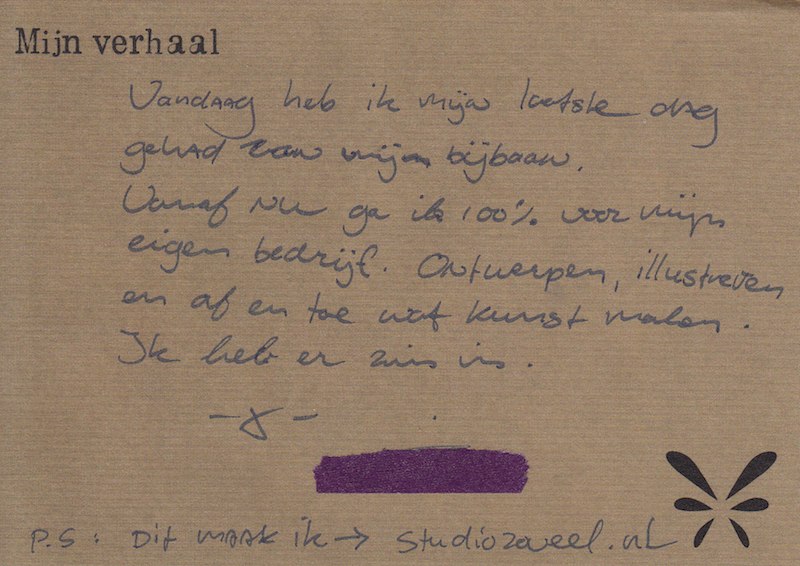 Mijn verhaal
Vandaag heb ik mijn laatste dag
gehad van mijn bijbaan.
Vanaf nu ga ik 100% voor mijn
eigen bedrijf. Ontwerpen, illustreren
en af en toe wat kunst maken.
Ik heb er zin in.
- X -
P.S: Dit maak ik → studiozoveel.nl